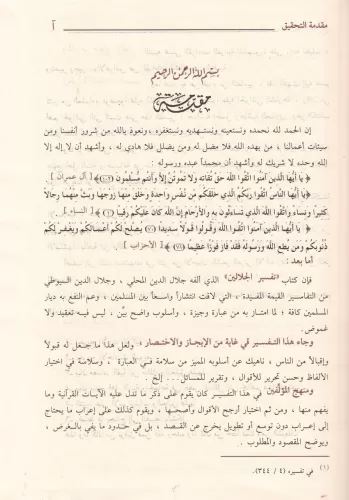 مقدمة التحقيق
أ
بسم الله الرحمن الرحيم
مقدمة
إن الحمد لله نحمده ونستعينه ونستهديه ونستغفره ، ونعوذ بالله من شرور أنفسنا ومن
سيئات أعمالنا ، من يهده الله فلا مضل له ومن يضلل فلا هادي له ، وأشهد أن لا إله إلا
الله وحده لا شريك له وأشهد أن محمداً عبده ورسوله :
﴿ يا أيها الذين آمنوا اتقوا الله حق تقاته ولا تموتن إلا وأنتم مسلمون ﴾ (١٠٢) [ آل عمران ]
﴿ يا أيها الناس اتقوا ربكم الذي خلقكم من نفس واحدة وخلق منها زوجها وبث منهما رجالاً
كثيراً ونساء واتقوا الله الذي تساءلون به والأرحام إن الله كان عليكم رقيباً (١) ﴾ [ النساء ]
﴿ يا أيها الذين آمنوا اتقوا الله وقولوا قولاً سديداً (٧٠) يصلح لكم أعمالكم ويغفر لكم
ذنوبكم ومن يطع الله ورسوله فقد فاز فوزاً عظيماً (٧١) ﴾ [ الأحزاب ]
أما بعد :
فإن كتاب « تفسير الجلالين » الذي ألفه جلال الدين المحلي ، وجلال الدين السيوطي
من التفاسير القيمة المفيدة ، التي لاقت انتشاراً واسعاً بين المسلمين ، وعم النفع به ديار
المسلمين كافة ؛ لما امتاز به من عبارة وجيزة ، وأسلوب واضح بيّن ، ليس فيه تعقيد ولا
غموض .
وجاء هذا التفسير في غاية من الإيجاز والاختصار ، ولعل هذا ما جعل له قبولاً
وإقبالاً من الناس ، ناهيك عن أسلوبه المميز من سلامة في العبارة ، وسلاسة في اختيار
الألفاظ وحسن تحرير للأقوال ، وتقرير للمسائل... إلخ .
ومنهج المؤلفين في هذا التفسير كان يقوم على ذكر ما تدل عليه الآيات القرآنية وما
يفهم منها ، ومن ثم اختيار أرجح الأقوال وأصحها ، ويقوم كذلك على إعراب ما يحتاج
إلى إعراب دون توسع أو تطويل يخرج عن القصد ، بل في حدود ما يفي بالغرض ،
ويوضح المقصود والمطلوب .
(١) في تفسيره (٤ / ٣٤٤)